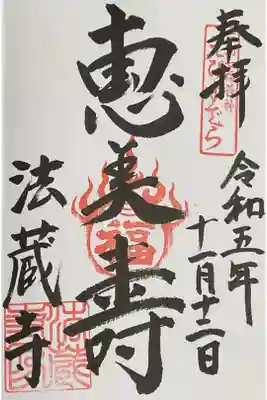 奉拝
令和五年
十一月十二日
恵美寿
福
法蔵寺